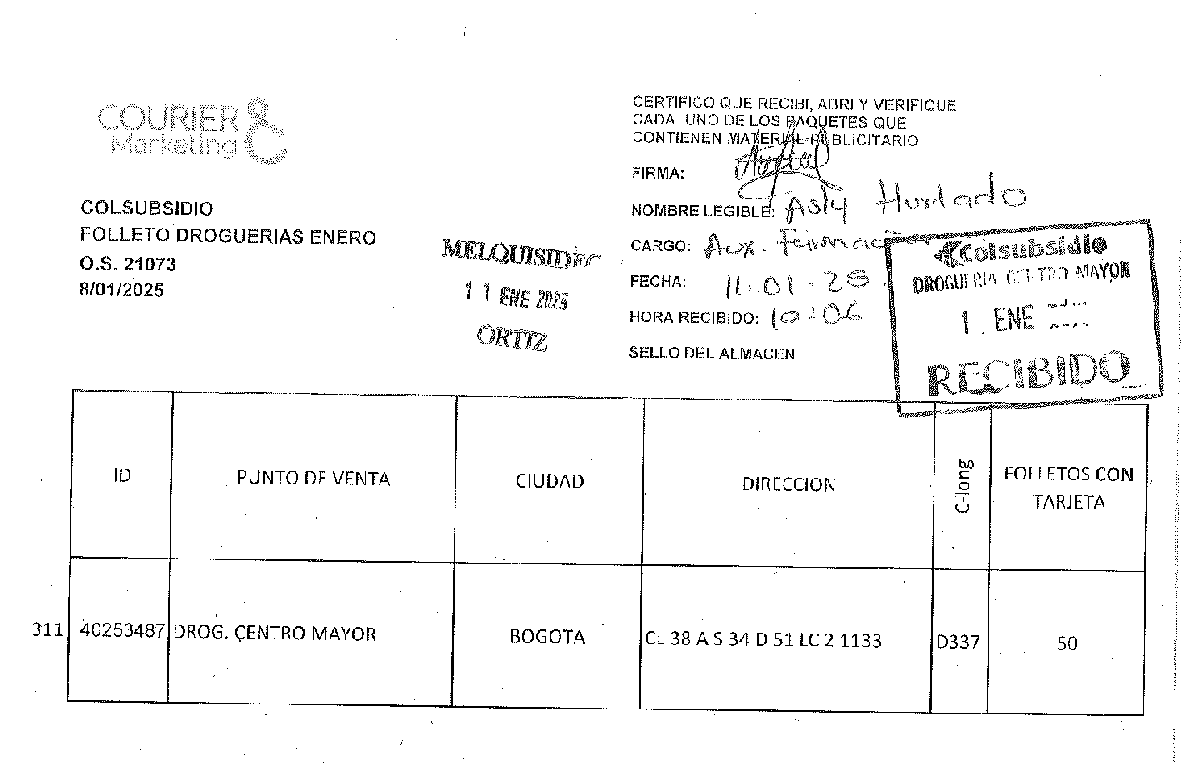 COURIER
Marketing
COLSUBSIDIO
FOLLETO DROGUERIAS ENERO
O.S. 21073
8/01/2025
MELQUISIDEC
11 ENE 2025
ORTIZ
CERTIFICO QUE RECIBI, ABRI Y VERIFIQUE
CADA UNO DE LOS PAQUETES QUE
CONTIENEN MATERIAL PUBLICITARIO
FIRMA:
NOMBRE LEGIBLE: Asly Hurtado
CARGO: Aux. Farmac
FECHA: 11-01-25
HORA RECIBIDO: 10:06
SELLO DEL ALMACEN
Colsubsidio
DROGUERIA CENTRO MAYOR
1 ENE
RECIBIDO
ID PUNTO DE VENTA CIUDAD DIRECCION C-long FOLLETOS CON TARJETA
311 40253487 DROG. CENTRO MAYOR BOGOTA CL 38 A S 34 D 51 LC 2 1133 D337 50